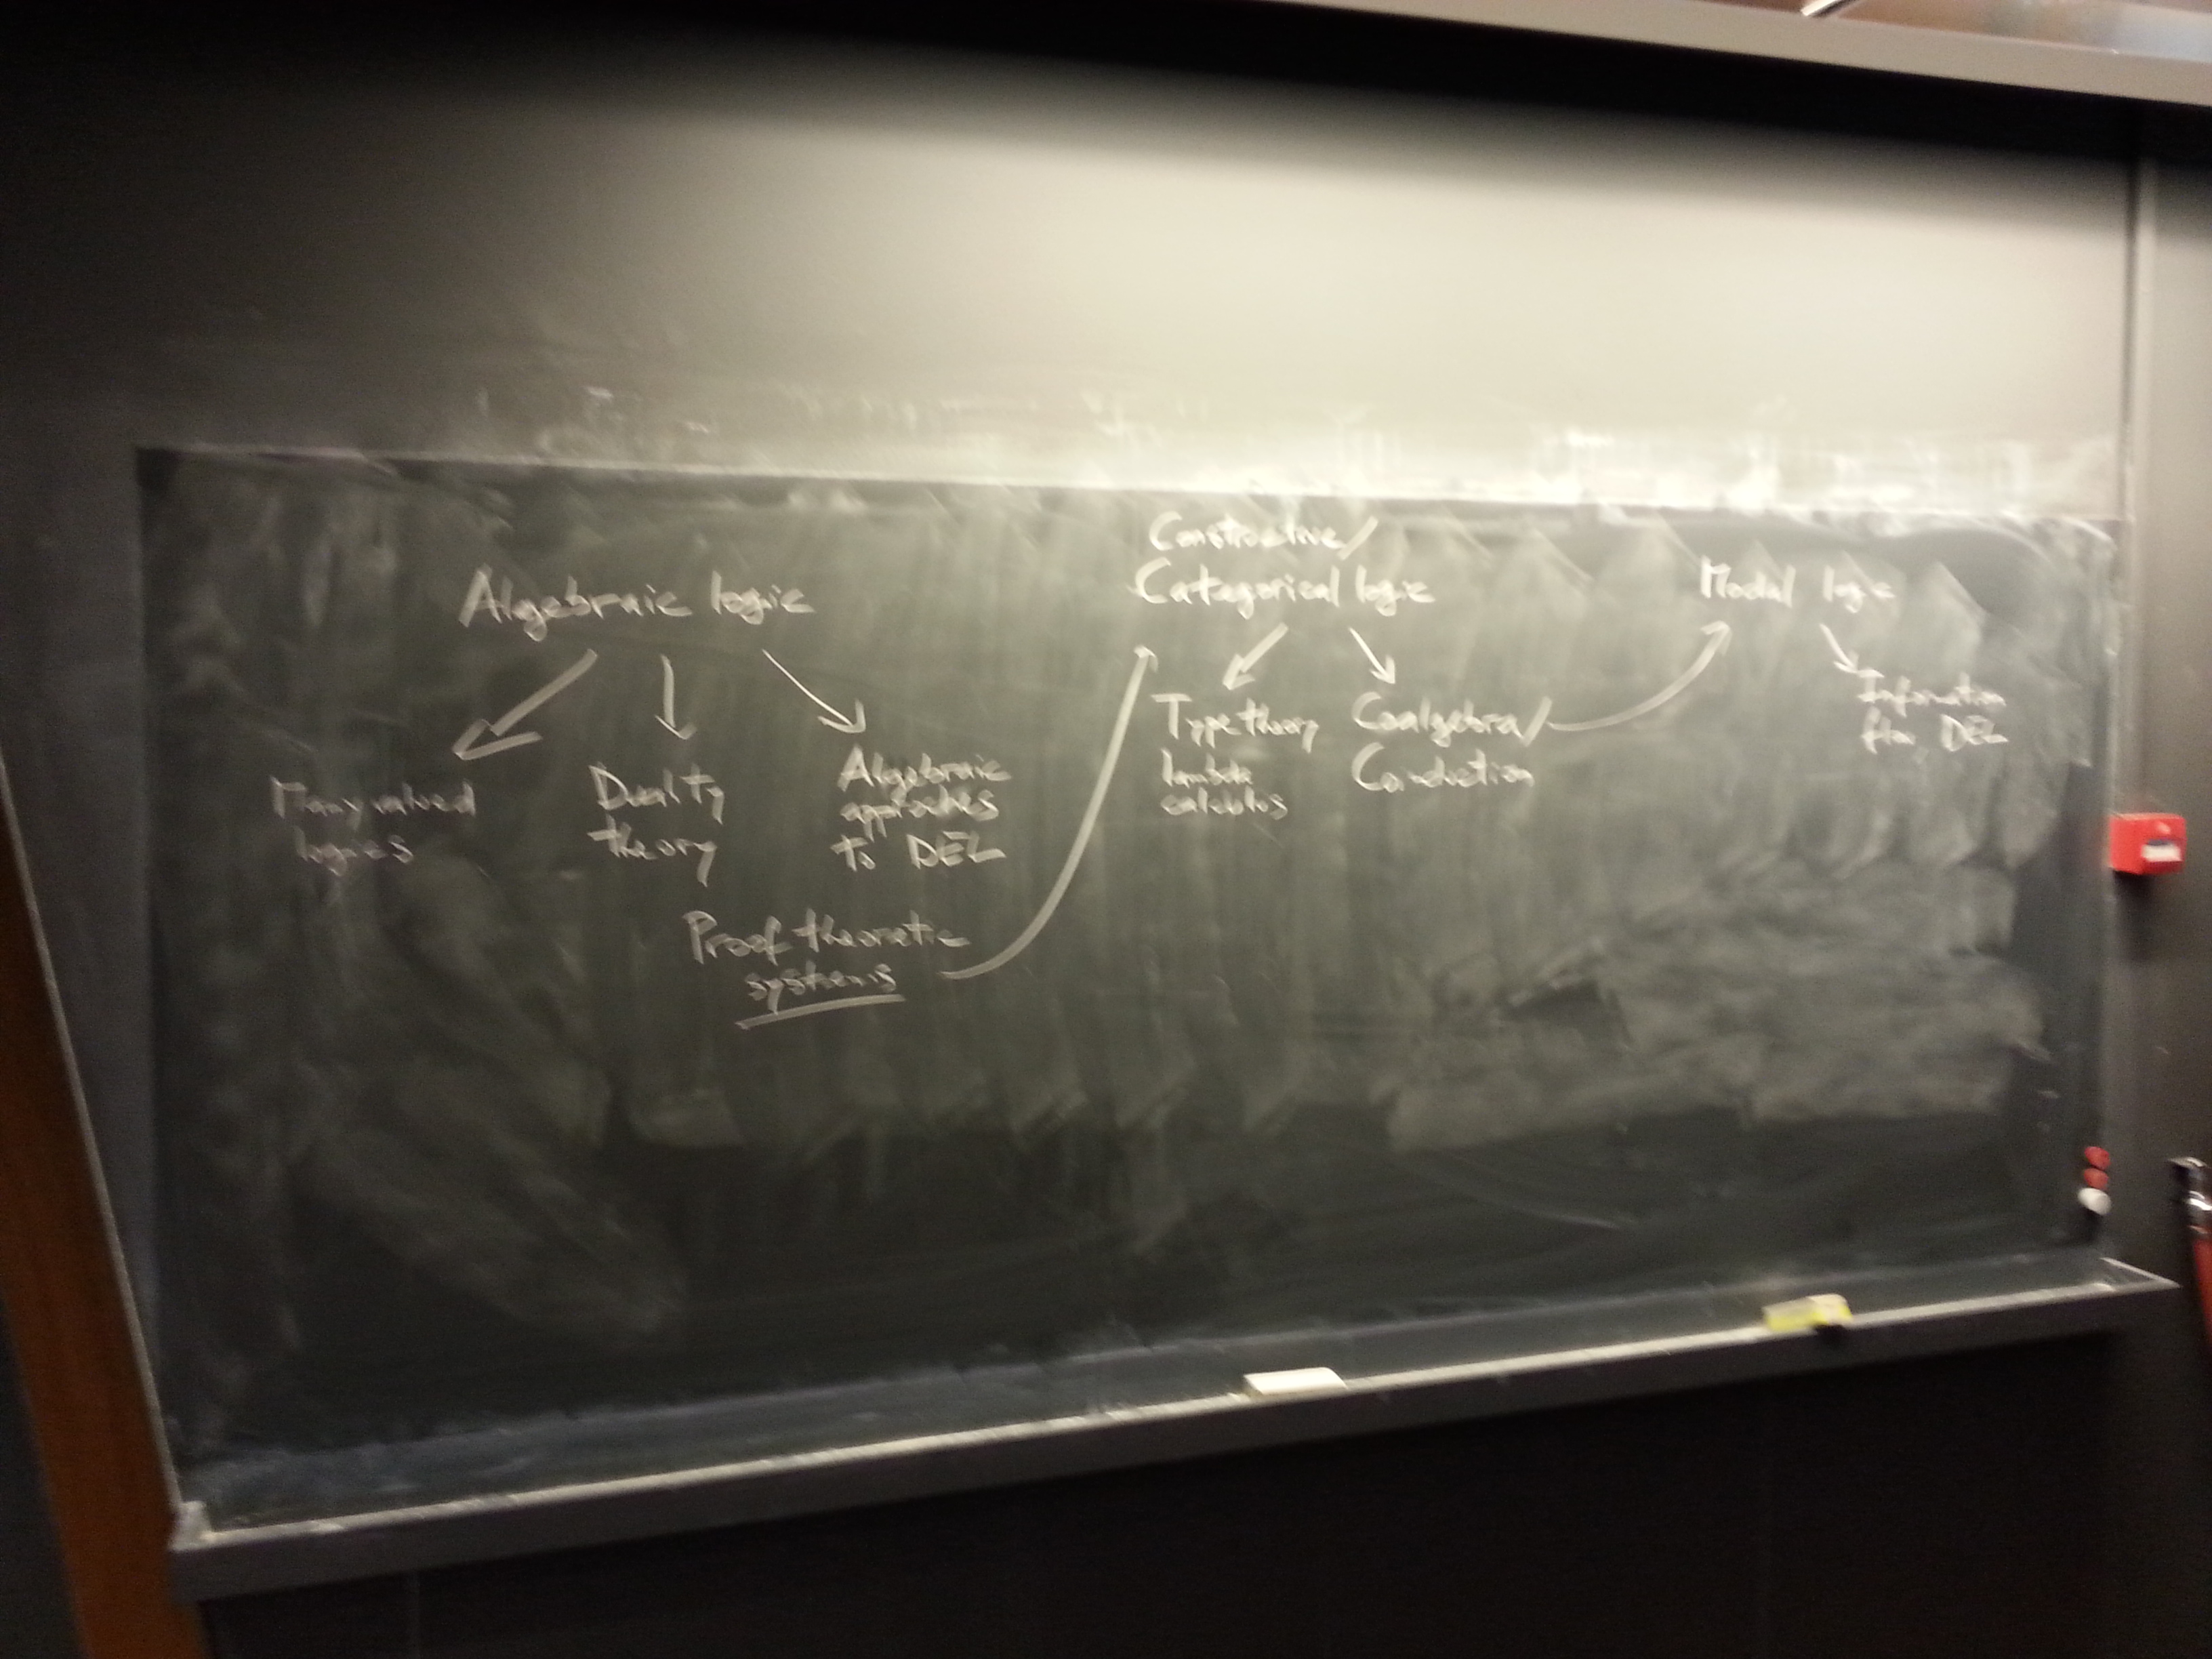 Algebraic logic
Many valued
logics
Duality
theory
Algebraic
approaches
to DEL
Proof theoretic
systems
Constructive/
Categorical logic
Type theory
lambda
calculus
Coalgebra/
Coinduction
Modal logic
Information
flow, DEL